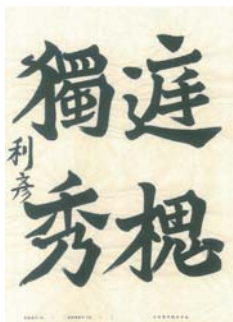 庭槐
獨秀
利彦